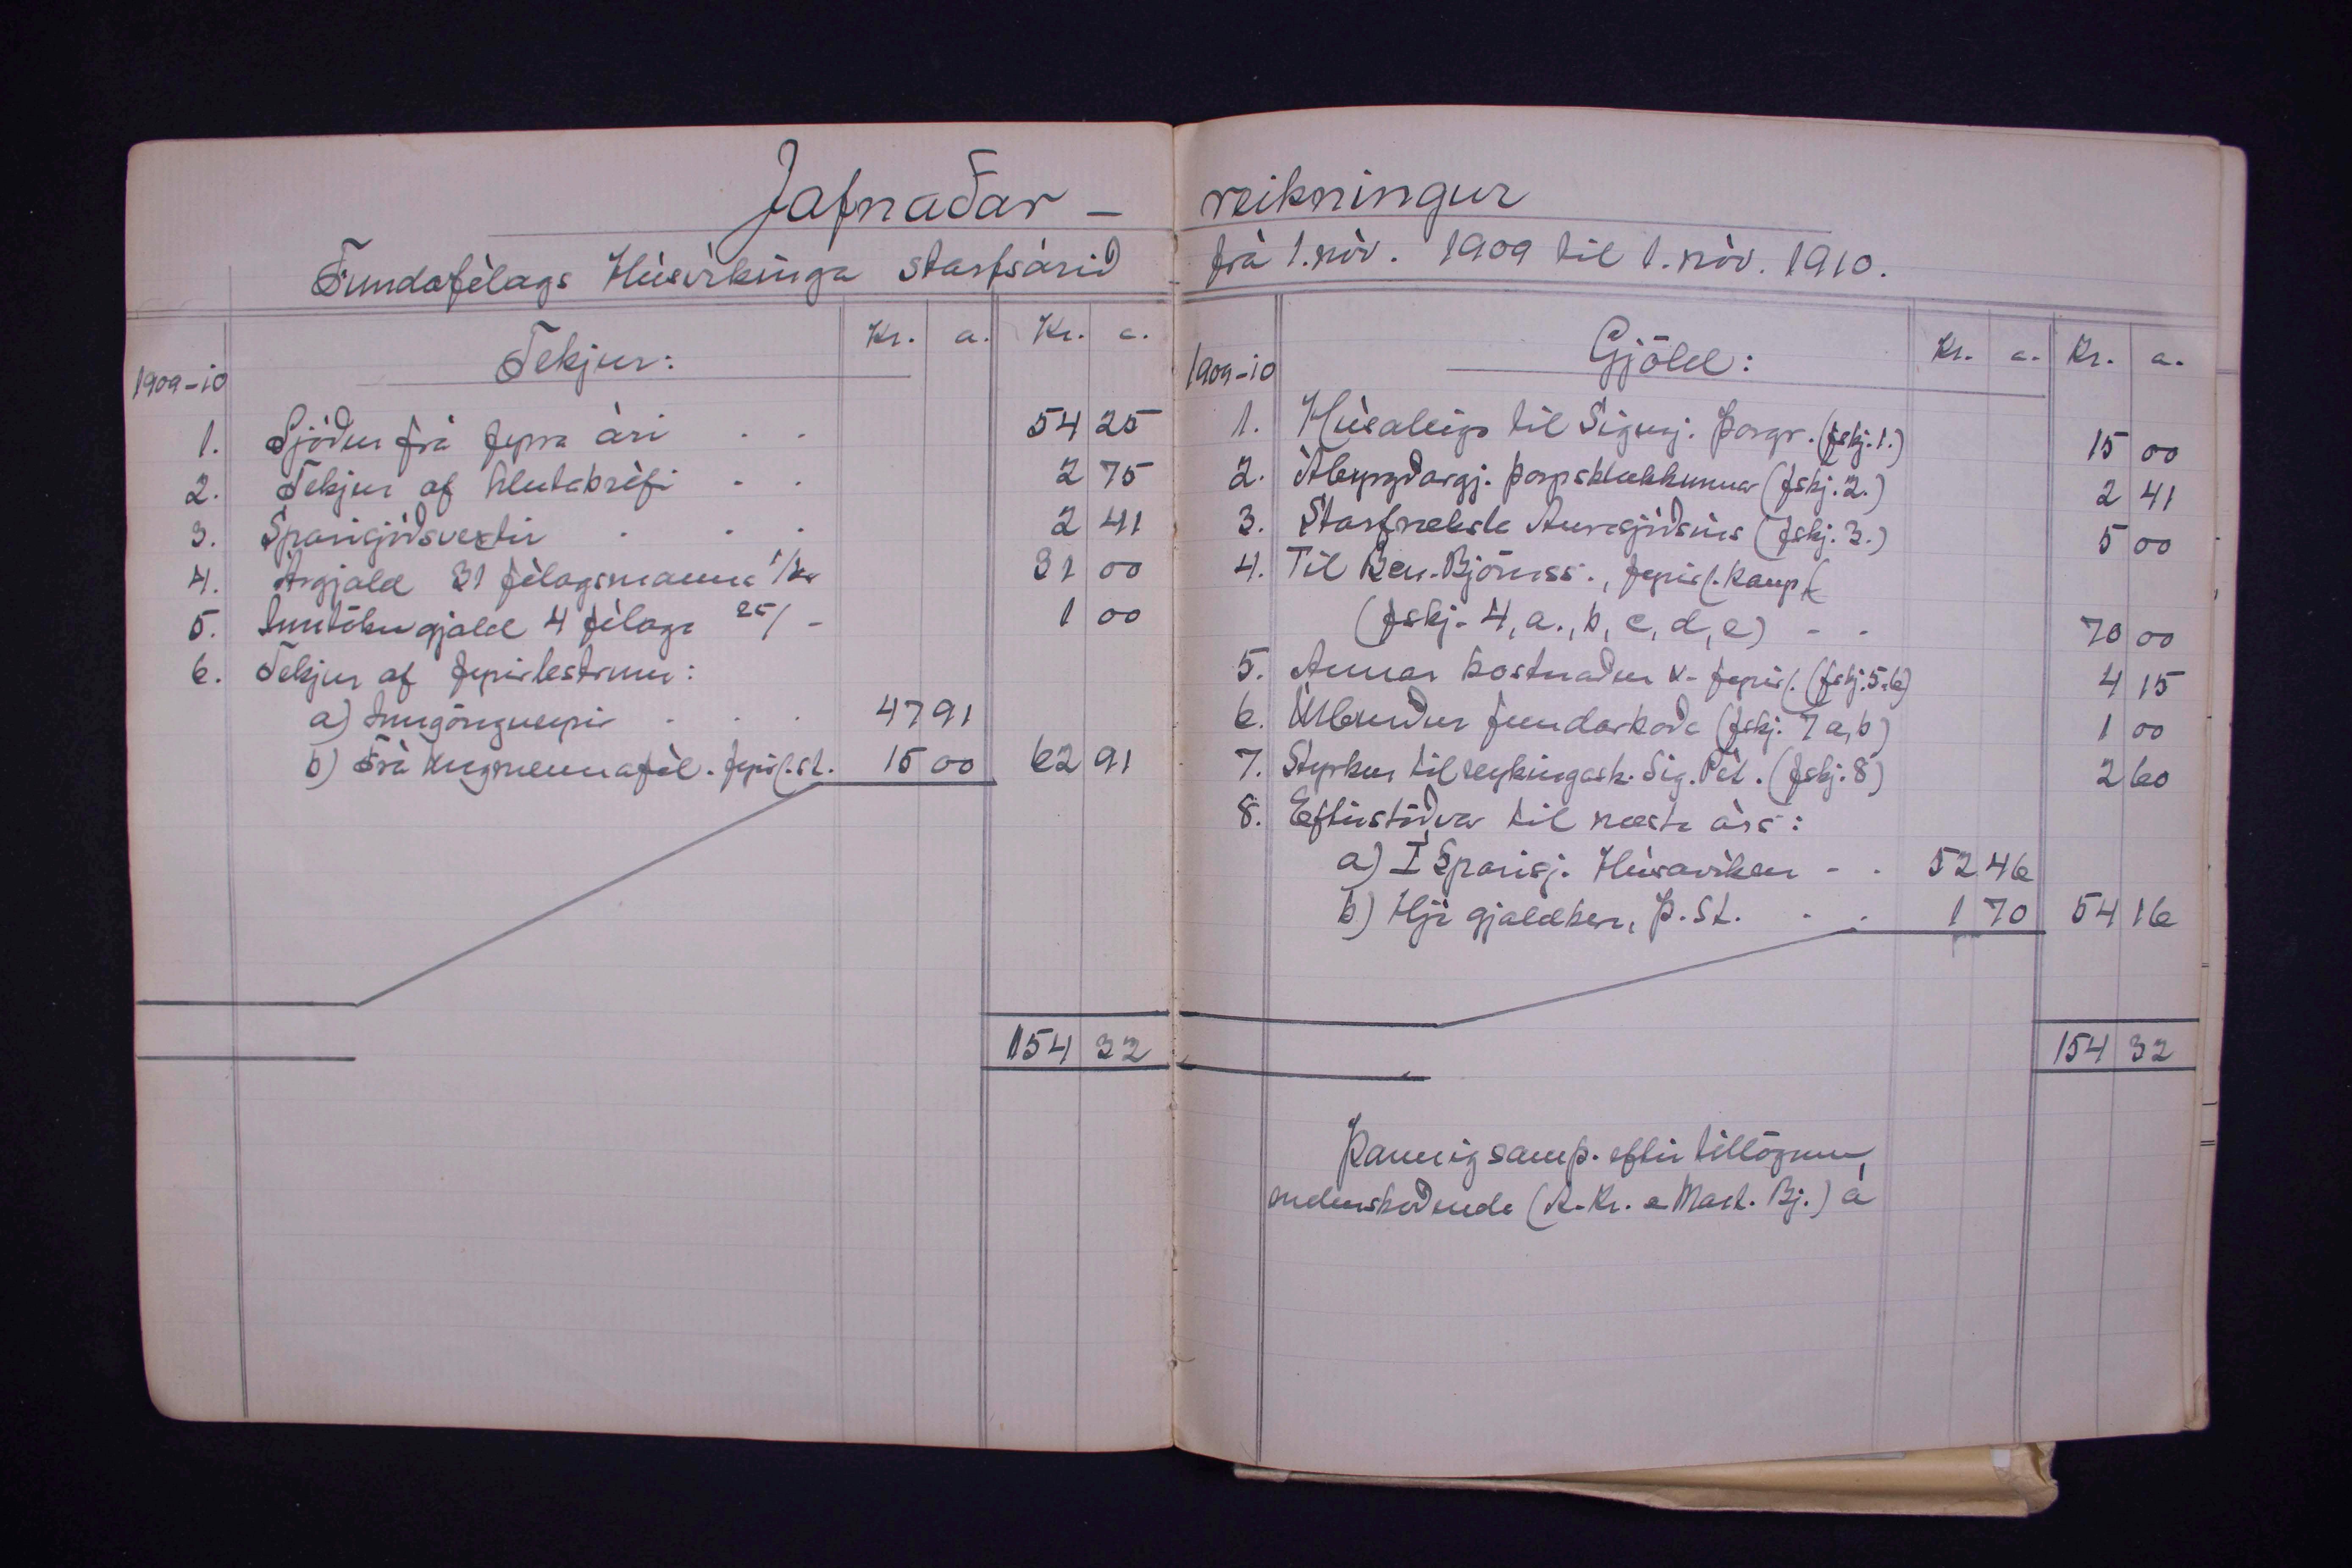 Jafnaðar –
Fundafélags Húsvíkinga starfsárið
Kr. a. Kr. a.
1909-10 Tekjur:
1. Sjóður frá fyrra ári . . 54 25
2. Tekjur af hlutabréfi . . 2 75
3. Sparisjóðsvextir . . . 2 41
4. Árgjald 31 félagsmanna 1/kr 31 00
5. Inntökugjald 4 félaga 25/- 1 00
6. Tekjur af fyrirlestrum:
a) Inngöngueyrir . . . 47 91
b) Frá Ungmennafél. fyrirl.st. 15 00 62 91
154 32
reikningur
frá 1. nóv. 1909 til 1. nóv. 1910.
Kr. a. Kr. a.
1909-10 Gjöld:
1. Húsaleiga til Sigurj. Þorgr. (fskj. 1.) 15 00
2. Ábyrgðargj. þorpsklukkunnar (fskj. 2.) 2 41
3. Starfræksla Aurasjóðsins (fskj. 3.) 5 00
4. Til Ben. Björnss., fyrirl. kaup
(fskj. 4, a., b, c, d, e) - . 70 00
5. Annar kostnaður v. fyrirl. (fskj. 5-6) 4 15
6. fundarboða (fskj. 7 a, b) 1 00
7. Styrkur til Sig. Pét. (fskj. 8) 2 60
8. Eftirstöðvar til næsta árs:
a) Í Sparisj. Húsavíkur - . 52 46
b) Hjá gjaldker. Þ. St. . . 1 70 54 16
154 32
Þannig samþ. eftir tillögum
endurskoðenda (A. Kr. & Mart. Bj.) á